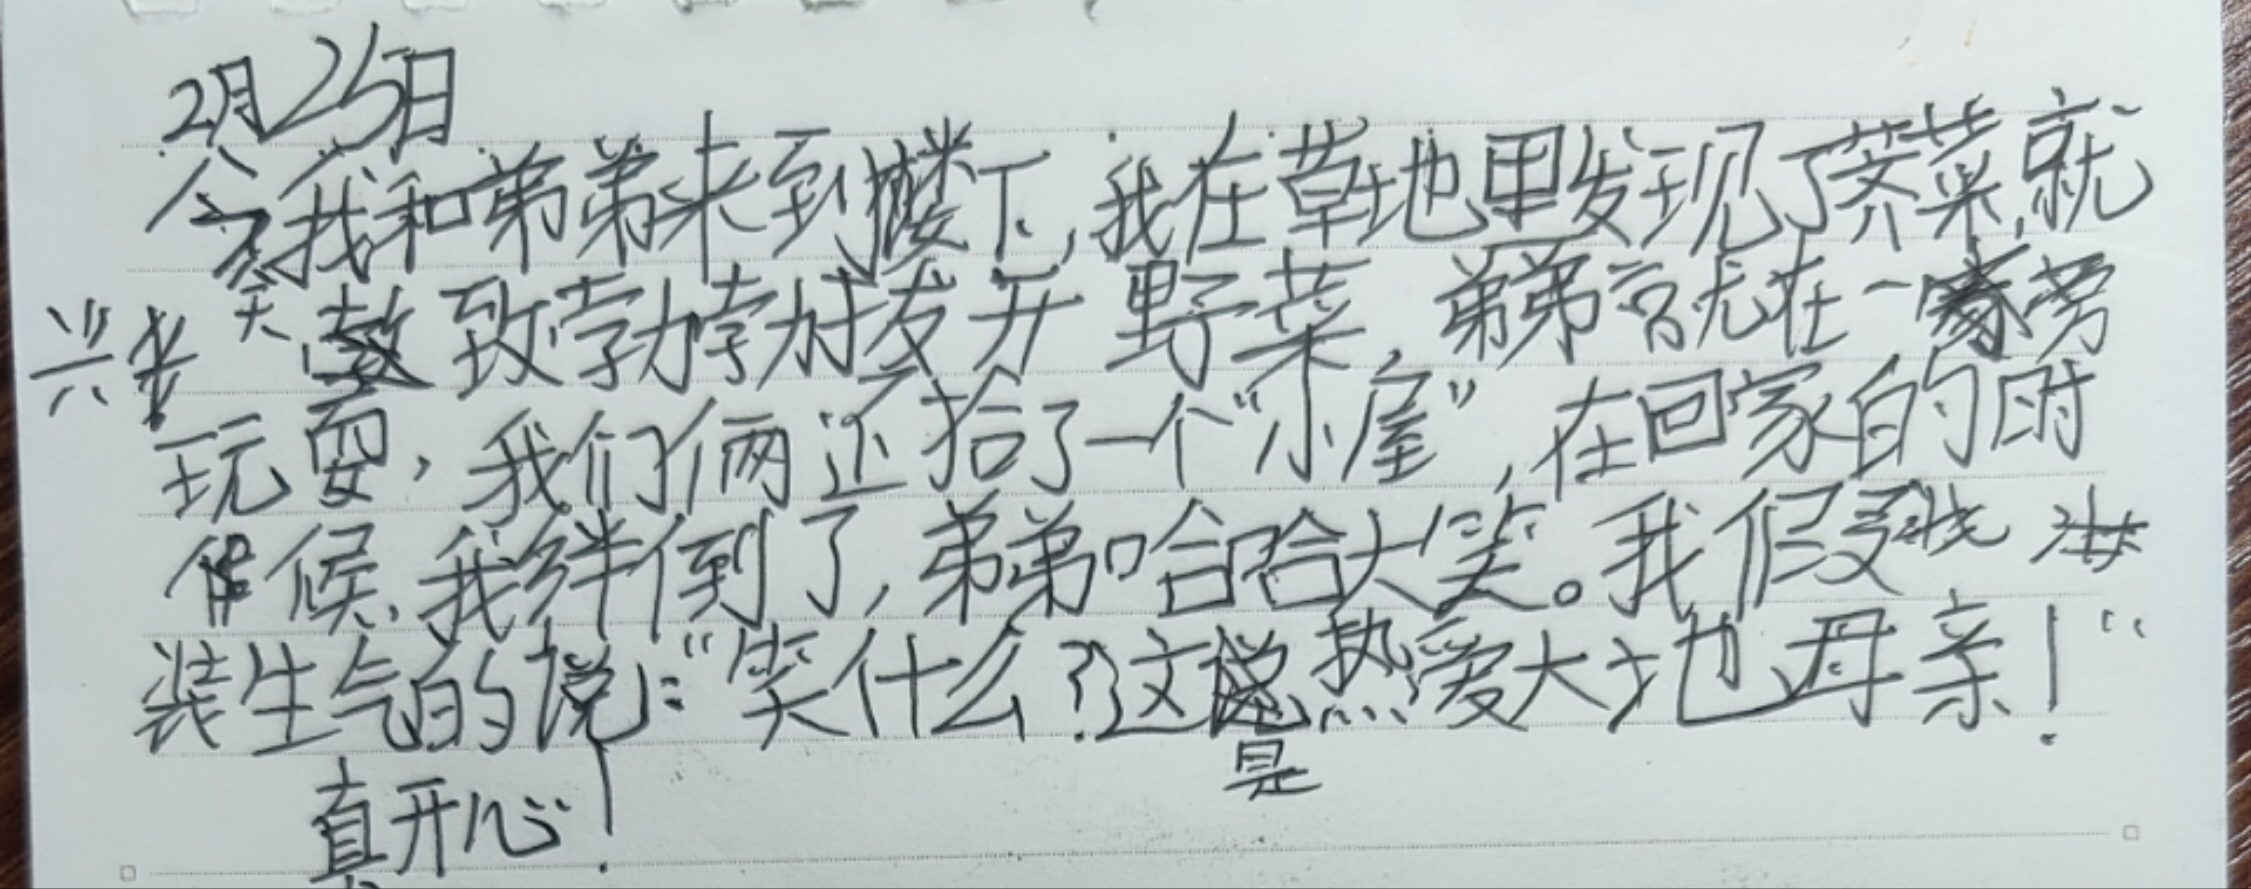 2月25日
今天我和弟弟来到楼下,我在草地里发现了荠菜,就
兴致勃勃拔开野菜,弟弟就在一旁
玩耍,我们俩还拾了一个“小屋”,在回家的时
候,我绊倒了,弟弟哈哈大笑。我假
装生气的说:“笑什么?这是热爱大地母亲!“
真开心!